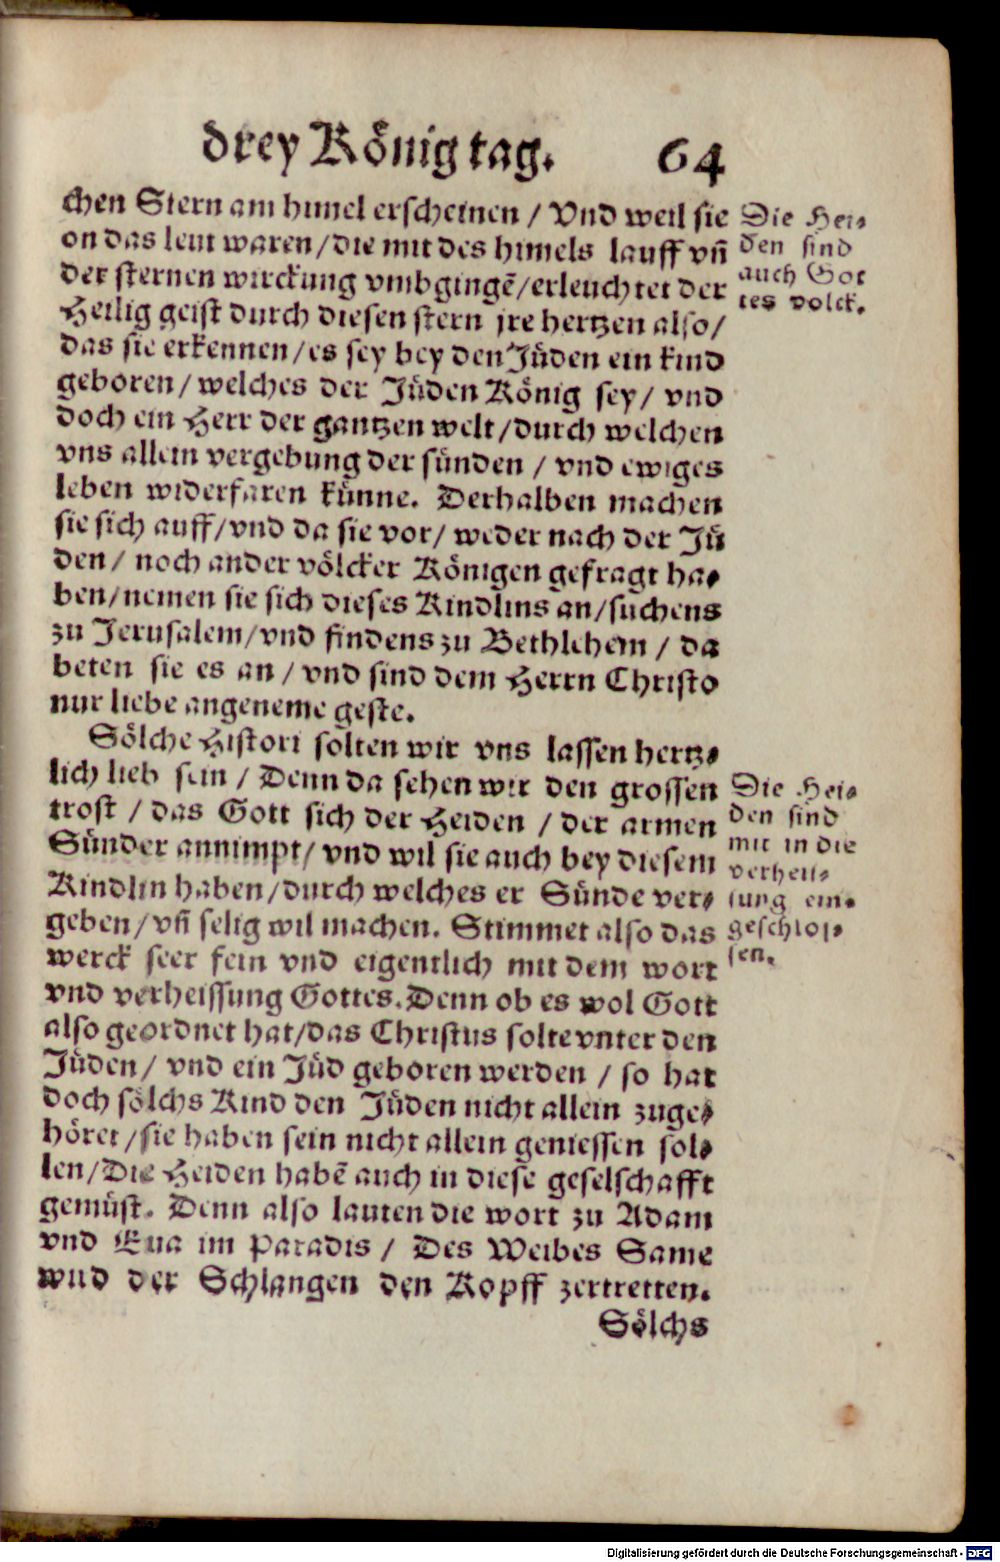 drey Koͤnig tag. 64
chen Stern am himel erscheinen / Vnd weil sie
on das leut waren / die mit des himels lauff vn̄
der sternen wirckung vmbgingē / erleuchtet der
Heilig geist durch diesen stern jre hertzen also /
das sie erkennen / es sey bey den Juͤden ein kind
geboren / welches der Juͤden Koͤnig sey / vnd
doch ein Herr der gantzen welt / durch welchen
vns allein vergebung der suͤnden / vnd ewiges
leben widerfaren kuͤnne. Derhalben machen
sie sich auff / vnd da sie vor / weder nach der Juͤ
den / noch ander voͤlcker Koͤnigen gefragt ha⸗
ben / nemen sie sich dieses Kindlins an / suchens
zu Jerusalem / vnd findens zu Bethlehem / da
beten sie es an / vnd sind dem Herrn Christo
nur liebe angeneme geste.
Soͤlche Histori solten wir vns lassen hertz⸗
lich lieb sein / Denn da sehen wir den grossen
trost / das Gott sich der Heiden / der armen
Suͤnder annimpt / vnd wil sie auch bey diesem
Kindlin haben / durch welches er Suͤnde ver⸗
geben / vn̄ selig wil machen. Stimmet also das
werck seer fein vnd eigentlich mit dem wort
vnd verheissung Gottes. Denn ob es wol Gott
also geordnet hat / das Christus solte vnter den
Juͤden / vnd ein Juͤd geboren werden / so hat
doch soͤlchs Kind den Juͤden nicht allein zuge⸗
hoͤret / sie haben sein nicht allein geniessen sol⸗
len / Die Heiden habē auch in diese geselschafft
gemuͤst. Denn also lauten die wort zu Adam
vnd Eua im Paradis / Des Weibes Same
wird der Schlangen den Kopff zertretten.
Soͤlchs
Die Hei⸗
den sind
auch Got
tes volck.
Die Hei⸗
den sind
mit in die
verheis⸗
sung ein⸗
geschlos⸗
sen.
Digitalisierung gefördert durch die Deutsche Forschungsgemeinschaft - DFG